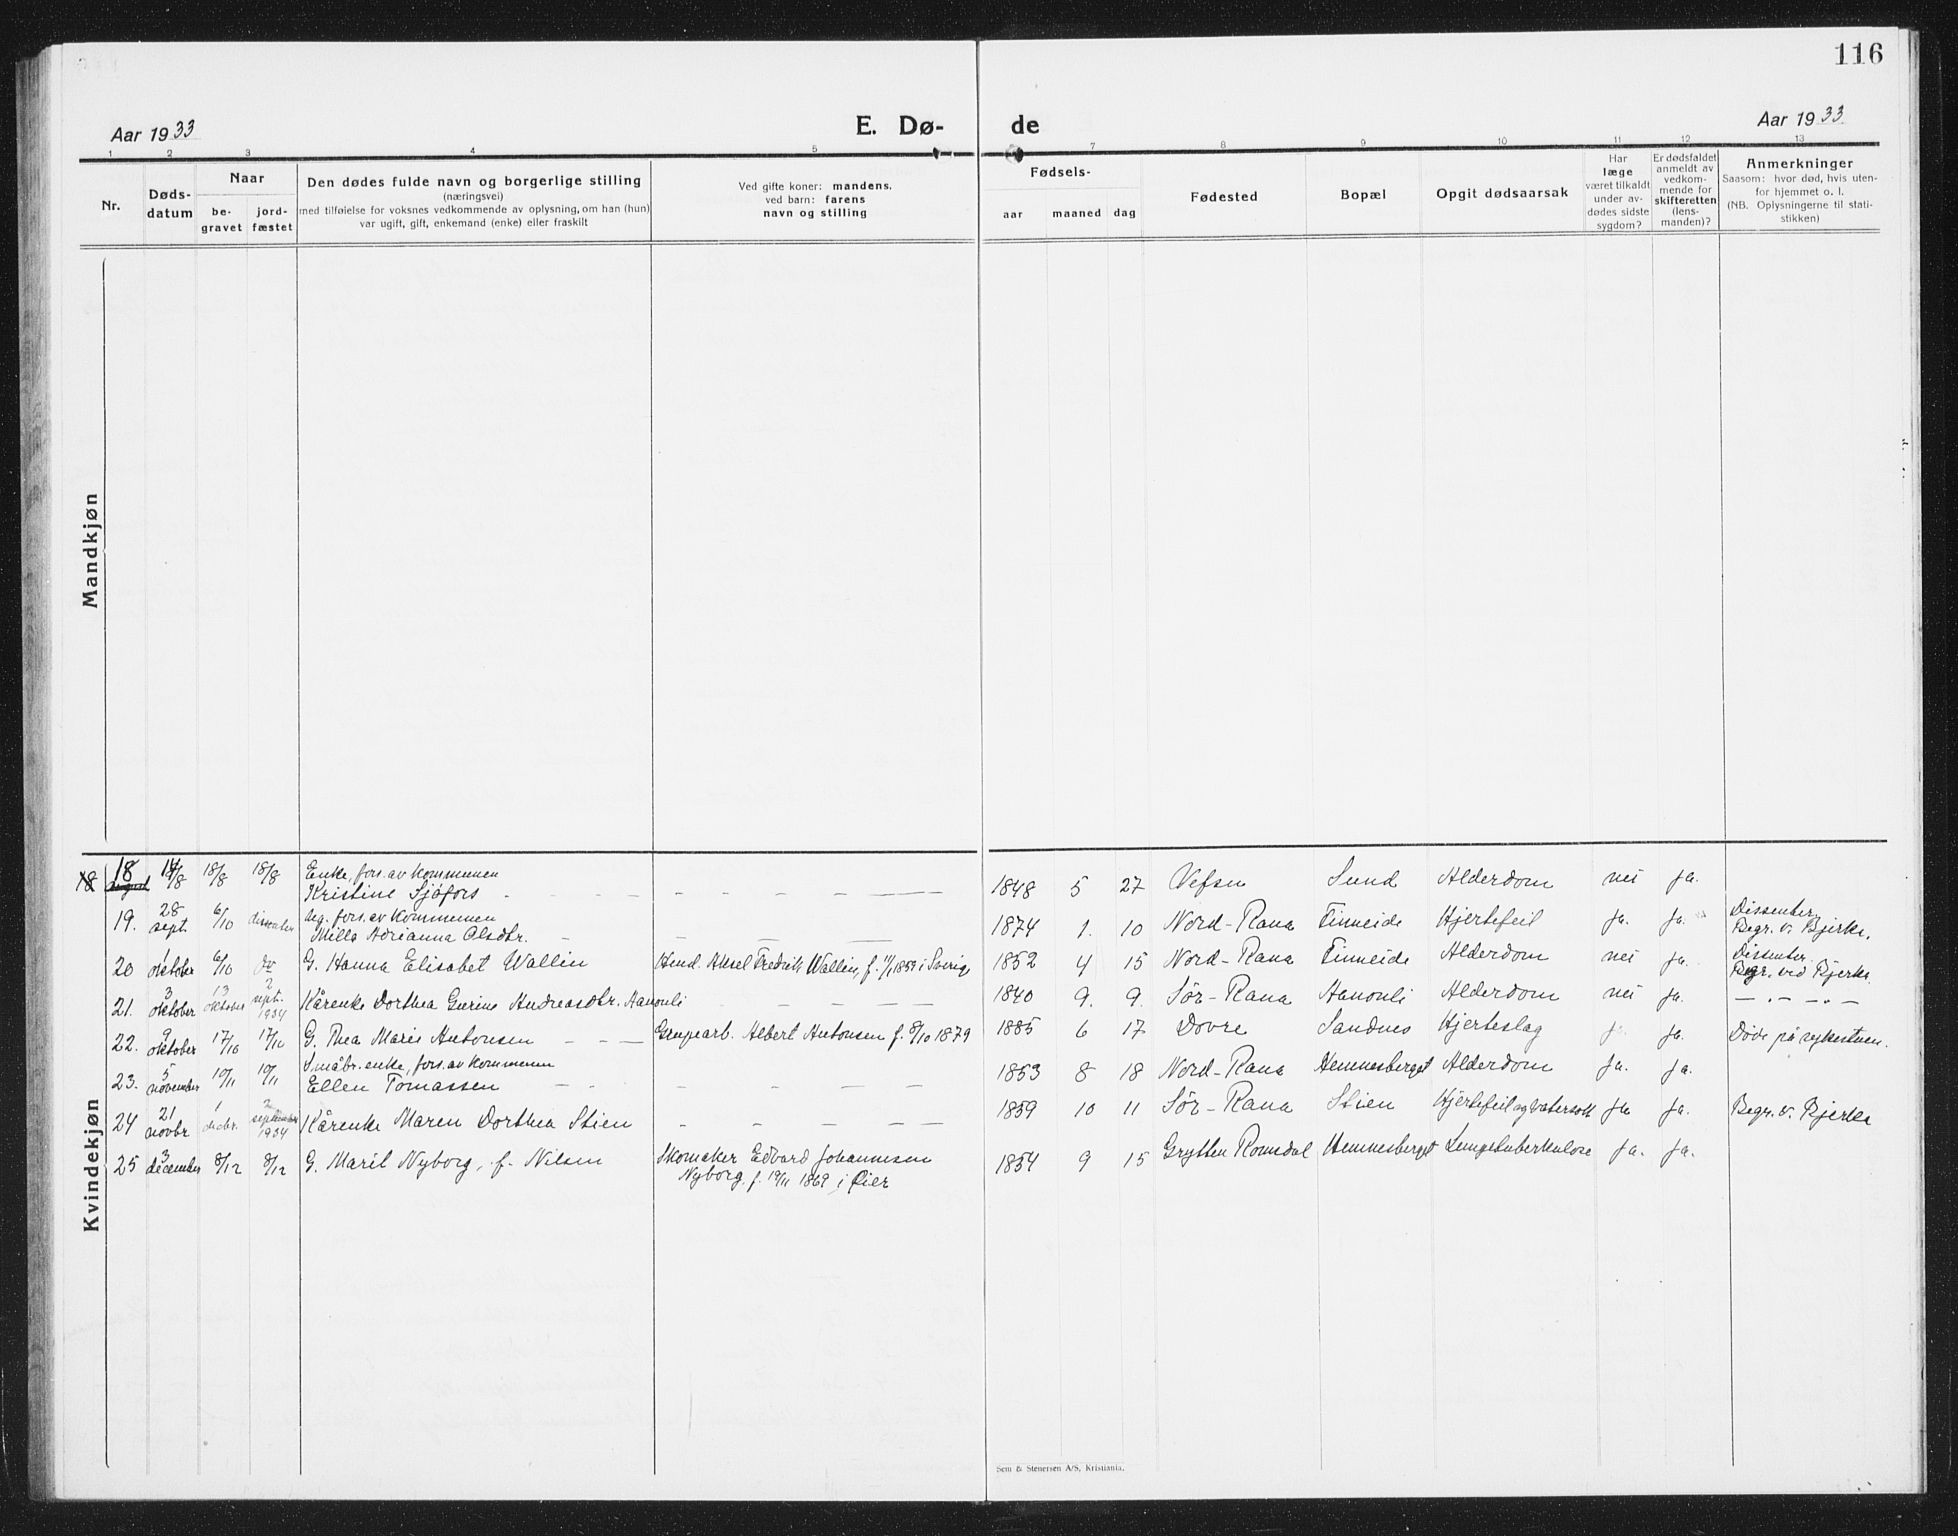 116
Aar 1933
E. Dø-
de
Aar 1933
1 2 3 4 5 7 8 9 10 11 12 13
Nr.
Døds-
datum
Naar
be-
gravet
jord-
fæstet
Den dødes fulde navn og borgerlige stilling
(næringsvei)
med tilføielse for voksnes vedkommende av oplysning, om han (hun)
var ugift, gift, enkemand (enke) eller fraskilt
Ved gifte koner: mandens.
ved barn: farens
navn og stilling
Fødsels-
aar maaned dag
Fødested
Bopæl
Opgit dødsaarsak
Har
læge
været tilkaldt
under av-
dødes sidste
sygdom?
Er dødsfaldet
anmeldt av
vedkom-
mende for
skifteretten
(lens-
manden)?
Anmerkninger
Saasom: hvor død, hvis uten-
for hjemmet o. l.
(NB. Oplysningerne til stati-
stikken)
Mandkjøn
Kvindekjøn
18 14/8 18/8 18/8 Enke, fors. av kommunen
Kristine Sjøfors 1848 5 27 Vefsn Sund Alderdom nei ja.
19. 28 sept. 6/10 dissenter ug. fors. av kommunen
Milla Adrianna Olsdtr. 1874 1. 10 Nord-Rana Finneide Hjertefeil ja. ja. Dissenter.
Begr. v. Bjerka.
20 1 oktober 6/10 G. Hanna Elisabet Wallin Aksel Fredrik Wallin, f. 1/1 1859 i Sverige 1852 4 15 Nord-Rana Finneide Alderdom nei ja. Dissenter.
Begr. ved Bjerka.
21. 3 oktober 13 oktober 2 sept. 1934 Kårenke Dorthea Gurine Andreasdtr. Hanonli 1840 9. 9. Sør-Rana Hanonli Alderdom nei ja. — . — . —
22. 9 oktober 17/10 17/10 G. Thea Marie Antonsen Gruvearb. Albert Antonsen f. 8/10 1879 1885 6 17 Dovre Sandnes Hjerteslag ja. Døde på sykestuen.
23. 5 november 10/11 10/11 Småbr. enke, fors. av kommunen
Ellen Tomassen 1853 8 18 Nord-Rana Hemnesberget Alderdom ja. ja.
24 21 novbr 1 decbr. 2 september 1934 Kårenke Maren Dorthea Stien 1859 10 11 Sør-Rana Stien Hjertefeil og vatersott ja ja. Begr. v. Bjerka
25 3 december 8/12 8/12 G. Marit Nyborg, f. Nilsen Skomaker Edvard Johannesen
Nyborg, f. 19/11 1869 i Øier 1854 9 15 Grytten Romsdal Hemnesberget Lungetuberkulose ja. ja.
Sem & Stenersen A/S, Kristiania.